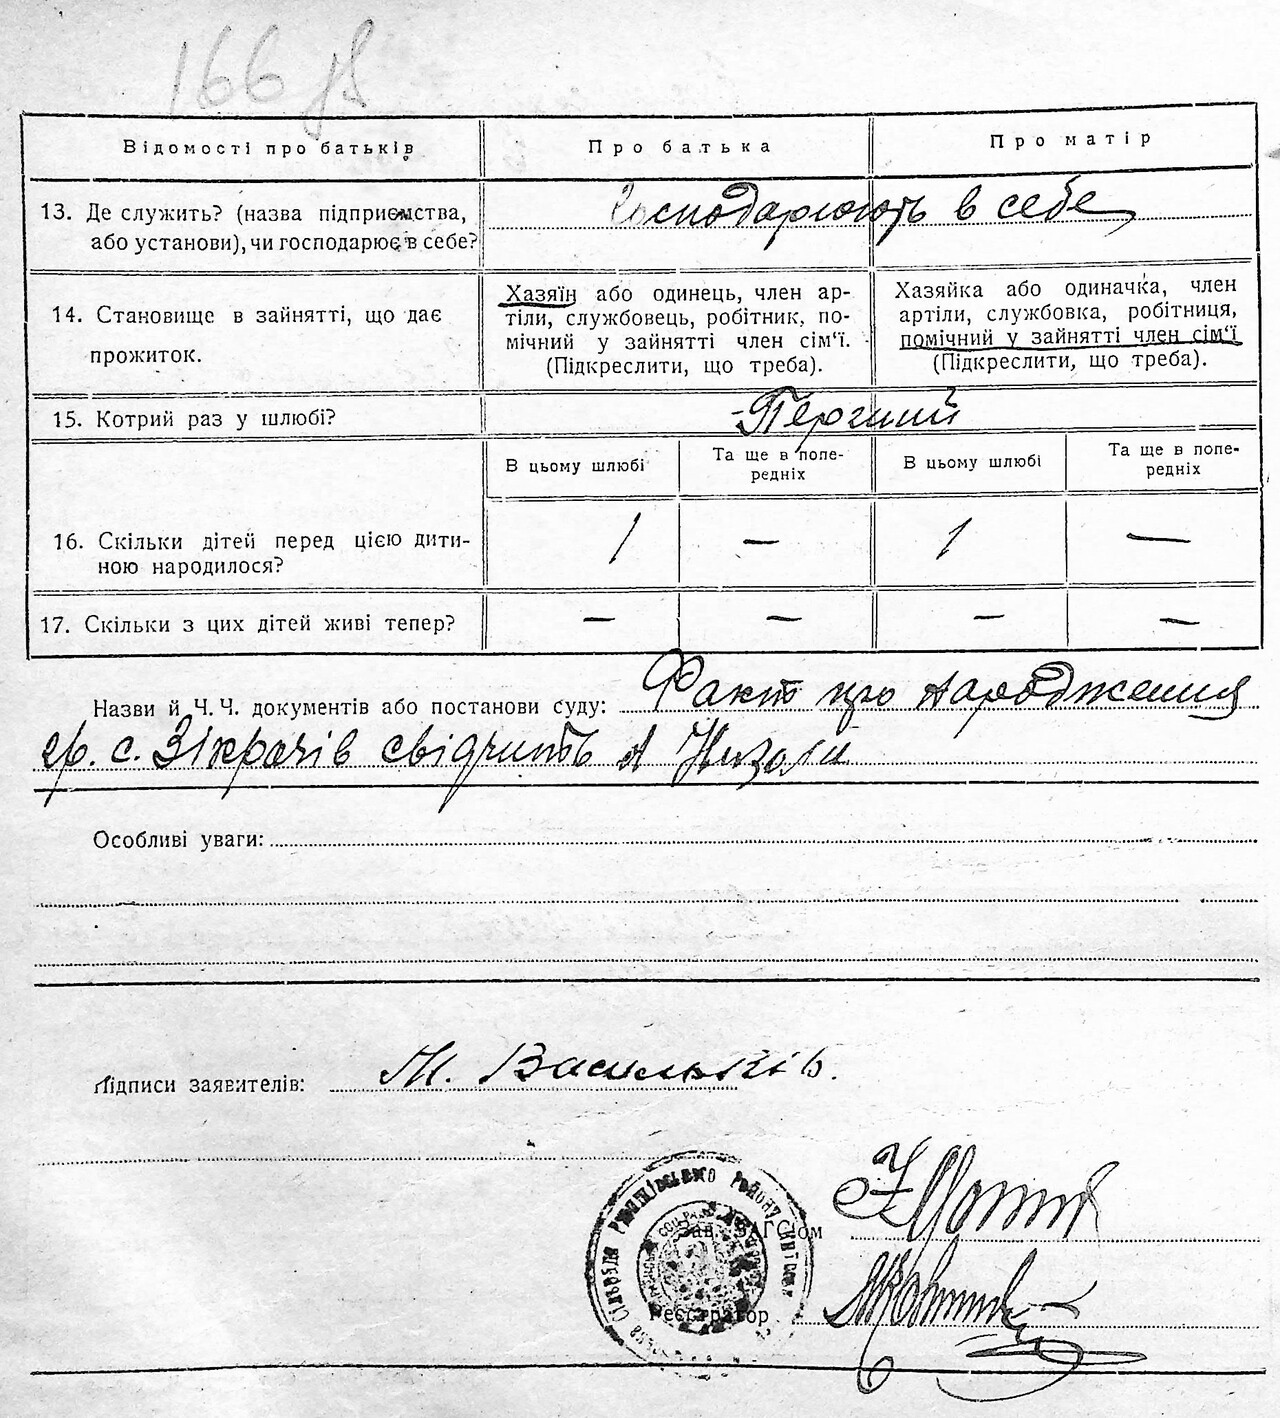 166 зв
Відомості про батьків
Про батька
Про матір
13. Де служить? (назва підприємства,
або установи), чи господарює в себе?
Господарюють в себе
14. Становище в зайнятті, що дає
прожиток.
Хазяїн або одинець, член ар-
тіли, службовець, робітник, по-
мічний у зайнятті член сім'ї.
(Підкреслити, що треба).
Хазяйка або одиначка, член
артіли, службовка, робітниця,
помічний у зайнятті член сім'ї
(Підкреслити, що треба).
15. Котрий раз у шлюбі?
Перший
В цьому шлюбі
Та ще в попе-
редніх
В цьому шлюбі
Та ще в попе-
редніх
16. Скільки дітей перед цією дити-
ною народилося?
1 — 1 —
17. Скільки з цих дітей живі тепер?
— — — —
Назви й Ч. Ч. документів або постанови суду: Факт про народження
гр. с. Зікрачів свідчить А
Особливі уваги:
Підписи заявителів: М. Васильків.
Зав. ЗАГС'ом
Реєстратор